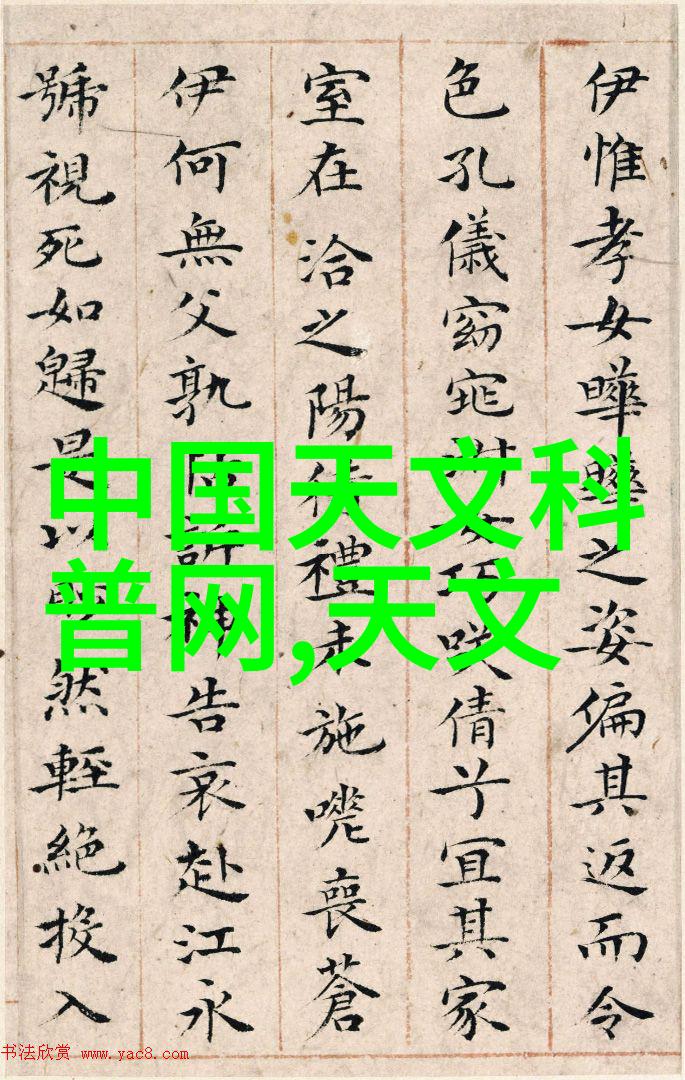 伊惟孝女曄曄之姿偏其返而令
色孔儀窈窕淑女巧咲倩兮宜其家
室在洽之陽待禮未施嗟喪蒼
伊何無父孰訴神告哀赴江永
號視死如歸是以然輕絕投入
中国天文科
普网,天文
书法欣赏 www.yac8.com